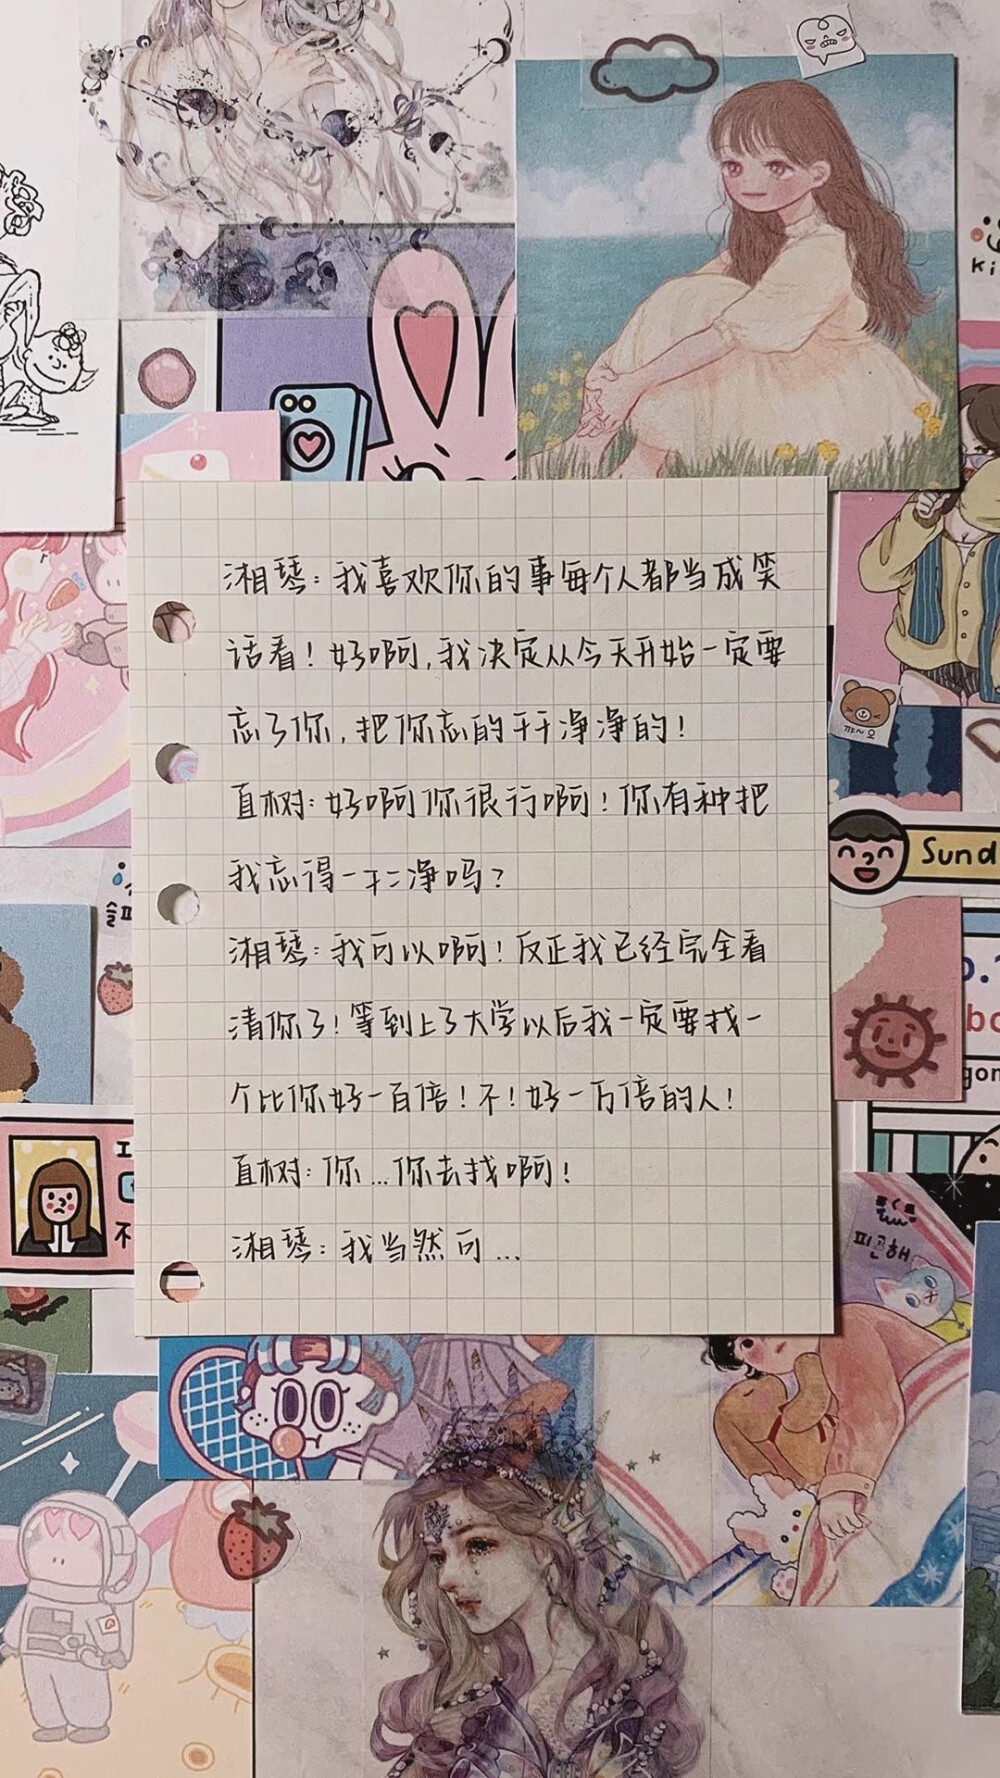 湘琴：我喜欢你的事每个人都当成笑
话看！好啊，我决定从今天开始一定要
忘了你，把你忘的干干净净的！
直树：好啊你很行啊！你有种把
我忘得一干二净吗？
湘琴：我可以啊！反正我已经完全看
清你了！等到上了大学以后我一定要找一
个比你好一百倍！不！好一万倍的人！
直树：你…你去找啊！
湘琴：我当然可…
Sund
피곤해